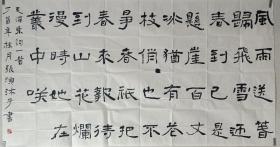 風雨送春
歸飛雪迎
春到已是
懸崖百丈
冰猶有花
枝俏〻也不
爭春只把
春來報待
到山花爛
漫時她在
叢中咲
毛澤東詞一首
丁酉年桂月張海沐手書